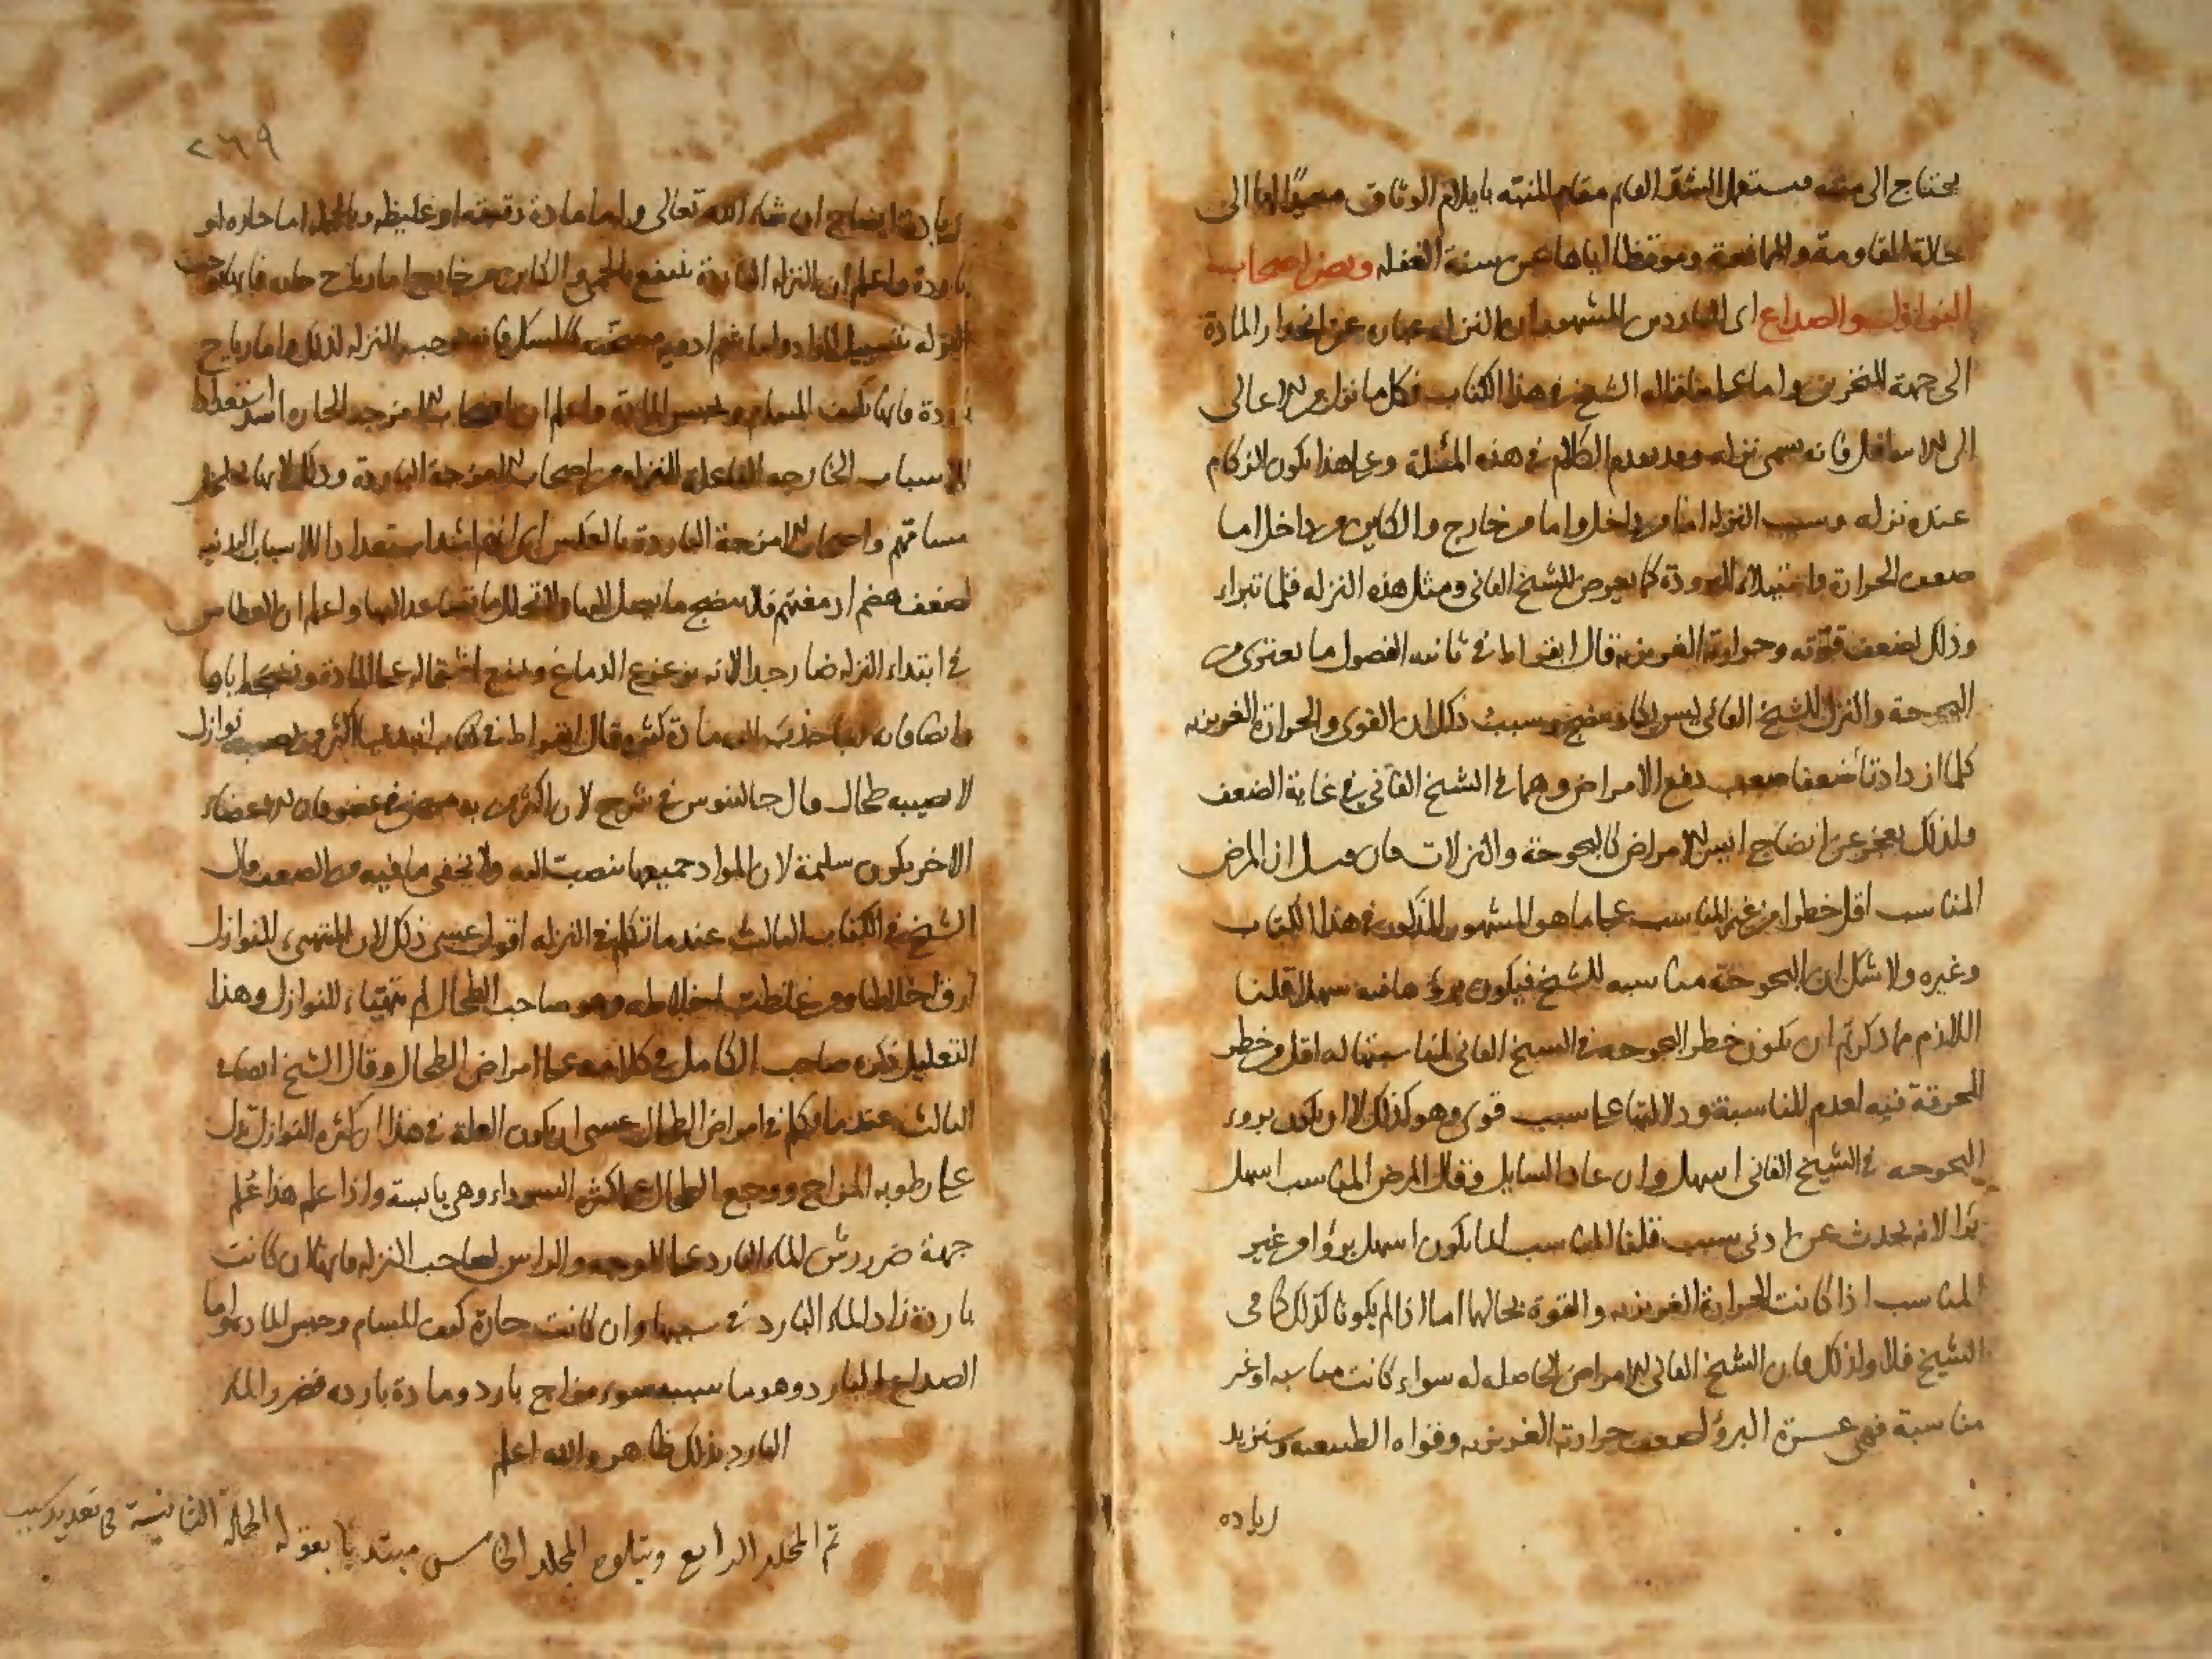 يحتاج الى منبه فيستعمل المشقة القائم مقام المنبه بايلام الوثاق معيدا لها الى
حالة المقاومة والمدافعة وموقظا اياها عن سنة الغفلة ويضر اصحاب
النوازل والصداع اى البارد من المشهور ان النزلة عبارة عن انحدار المادة
الى جهة المنخرين واما على ما قاله الشيخ فى هذا الكتاب فكل ما نزل من الاعالى
الى الاسافل فانه يسمى نزله وقد تقدم الكلام فى هذه المسئلة وعلى هذا يكون الزكام
عنده نزله وسبب النزله اما من داخل واما من خارج والكاين من داخل اما
ضعف الحرارة واستيلاء البرودة كما يعرض للشيخ الفانى ومثل هذه النزله قلما تبراء
وذلك لضعف قوته وحرارته الغريزيه قال ابقراط فى ثانيه الفصول ما يعترى من
البحوحة والنزل للشيخ الفانى ليس يكاد ينضج وسبب ذلك ان القوى والحرارة الغريزيه
كلما ازدادتا ضعفا صعب دفع الامراض وهما فى الشيخ الفانى فى غاية الضعف
ولذلك يعجز عن انضاج ايسر الامراض كالبحوحة والنزلات فان قيل ان المرض
المناسب اقل خطرا من غير المناسب على ما هو المشهور المذكور فى هذا الكتاب
وغيره ولا شك ان البحوحة مناسبه للشيخ فيكون برؤها فيه سهلا قلنا
اللازم مما ذكرتم ان يكون خطر البحوحه فى الشيخ الفانى لمناسبتها له اقل من خطر
المحرقة فيه لعدم المناسبة ودلالتها على سبب قوى وهو كذلك لا ان يكون بروء
البحوحه فى الشيخ الفانى اسهل وان عاد السايل وقال المرض المناسب اسهل
برا لانه يحدث عن ادنى سبب قلنا المناسب انما يكون اسهل برؤا من غير
المناسب اذا كانت الحرارة الغريزيه والقوة بحالها اما اذا لم يكونا كذلك كما فى
الشيخ فلا ولذلك فان الشيخ الفانى الامراض الحاصله له سواء كانت مناسبه او غير
مناسبة فهى عسرة البرؤ لضعف حرارته الغريزيه وقواه الطبيعيه وسنزيد
زياده
٢٦٩
زيادة ايضاح ان شاء الله تعالى واما مادة رقيقه او غليظه وبالجمله اما حاره او
باردة واعلم ان النزله الباردة تنتفع بالحمى والكاين من خارج اما رياح حاره فانها توجب
النزله بتسييل المواد واما شم ادويه مسخنه كالمسك فانه يوجب النزله لذلك واما رياح
باردة فانها تكثف المسام وتحبس المادة واعلم ان اصحاب الامزجه الحاره اشد استعدادا
للاسباب الخارجه الفاعله للنزله من اصحاب الامزجة الباردة وذلك
مسامهم واصحاب الامزجة الباردة بالعكس اى انهم اشد استعدادا للاسباب البدنيه
لضعف هضم ادمغتهم فلا ينضج ما يصل اليها ولا يتحلل ما يتصاعد اليها واعلم ان العطاس
فى ابتداء النزله ضار جدا لانه يزعزع الدماغ ويمنع اشتماله على المادة ونضجه اياها
وايضا فانه ربما جذب اليه مادة كثيره وقال ابقراط فى كتاب ابيديميا اكثر من تصيبه نوازل
لا يصيبه طحال قال جالينوس فى شرحه لان اكثر من به مرض فى عضو فان الاعضاء
الاخر يكون سليمة لان المواد جميعها تنصب اليه ولا يخفى ما فيه من الضعف وقال
الشيخ فى الكتاب الثالث عند ما تكلم فى النزله اقول عسى ذلك لان المتهيىء للنوازل
ارق اخلاطا ومن غلظت اخلاطه وهو صاحب الطحال لم يتهياء للنوازل وهذا
التعليل ذكره صاحب الكامل فى كلامه على امراض الطحال وقال الشيخ ايضا فى
الثالث عند ما تكلم فى امراض الطحال عسى ان يكون العلة فى هذا ان كثرة النوازل تدل
على رطوبه المزاج ووجع الطحال على كثرة السوداء وهى يابسة واذا علم هذا علم
جهة ضرر رش الماء البارد على الوجه والراس لصاحب النزله فانها ان كانت
باردة زاد الماء البارد فى سببها وان كانت حارة كثف المسام وحبس المادة واما
الصداع البارد وهو ما سببه سوء مزاج بارد ومادة بارده فضرر الماء
البارد بذلك ظاهر والله اعلم
تم المجلد الرابع ويتلوه المجلد الخامس مبتديا بقوله الجملة الثانية فى تعديد سبب